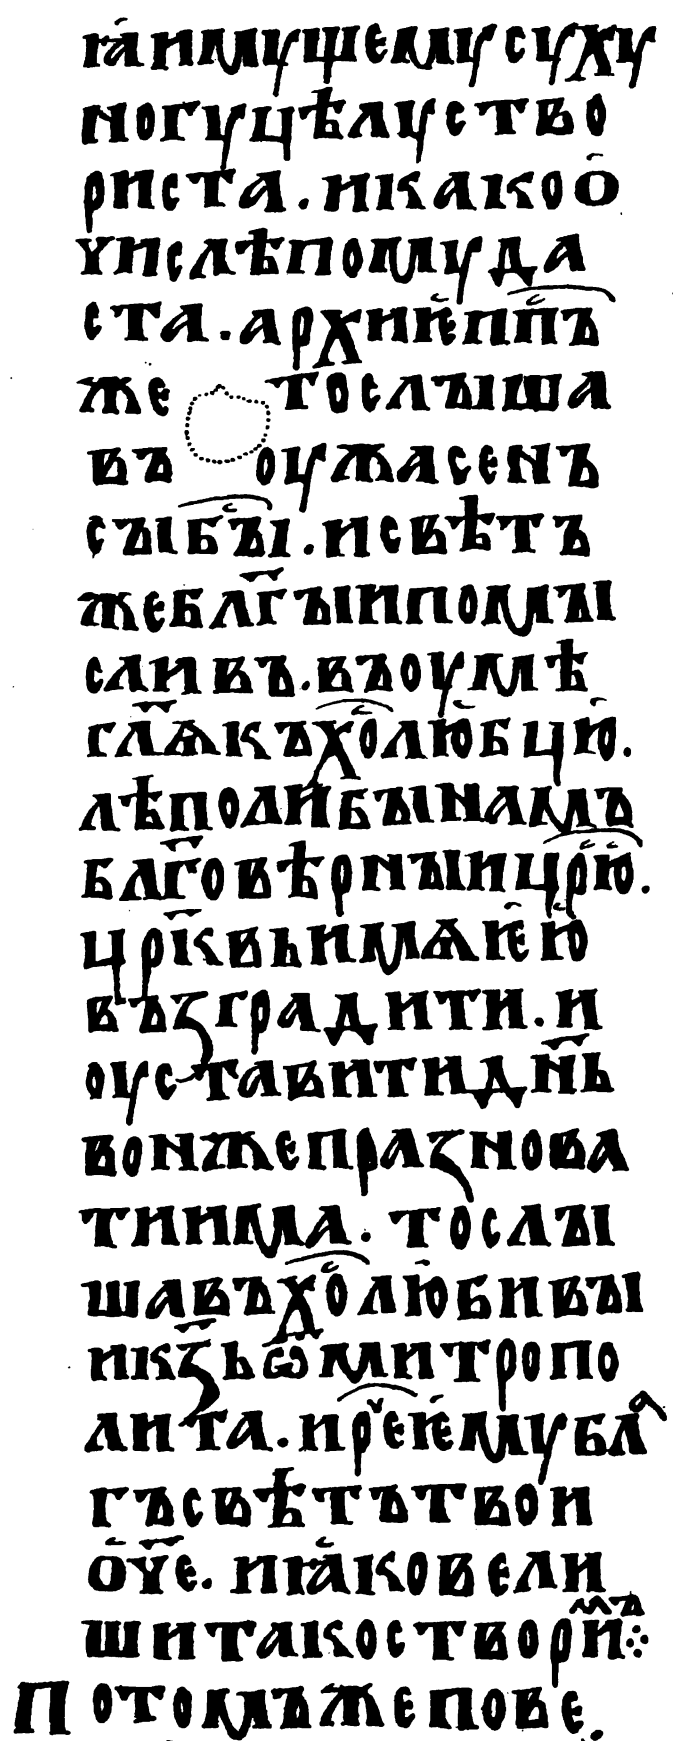 ꙗ҆имꙋщемꙋсꙋхꙋ
ногꙋцѣлꙋство
риста. икакоо҆
ѵислѣпомꙋда
ста. архиѥ҆пⷭ҇пъ
же тослꙑша
въ оужасенъ
сꙑбⷭ҇ꙑ. исвѣтъ
жеблг҃ꙑипомꙑ
сливъ. въоумѣ
гл҃ѧкъхⷭ҇олю҆бцю҆.
лѣполиꙑбꙑнамъ
блг҃овѣрнꙑицрⷭ҇ю҆.
цр҃квьимѧѥ҆ю҆
възградити. и
оуставитидн҃ь
вонжепразнова
тиима. тослꙑ
шавъхⷭ҇олю҆бивꙑ
икз҃ьѿмитропо
лита. ирⷱ҇еѥ҆мꙋблⷶ
гъсвѣтътвои
о҆ѵ҃е. иꙗ҆ковели
шитакостворимⷨъ⁘
Потомъжепове.